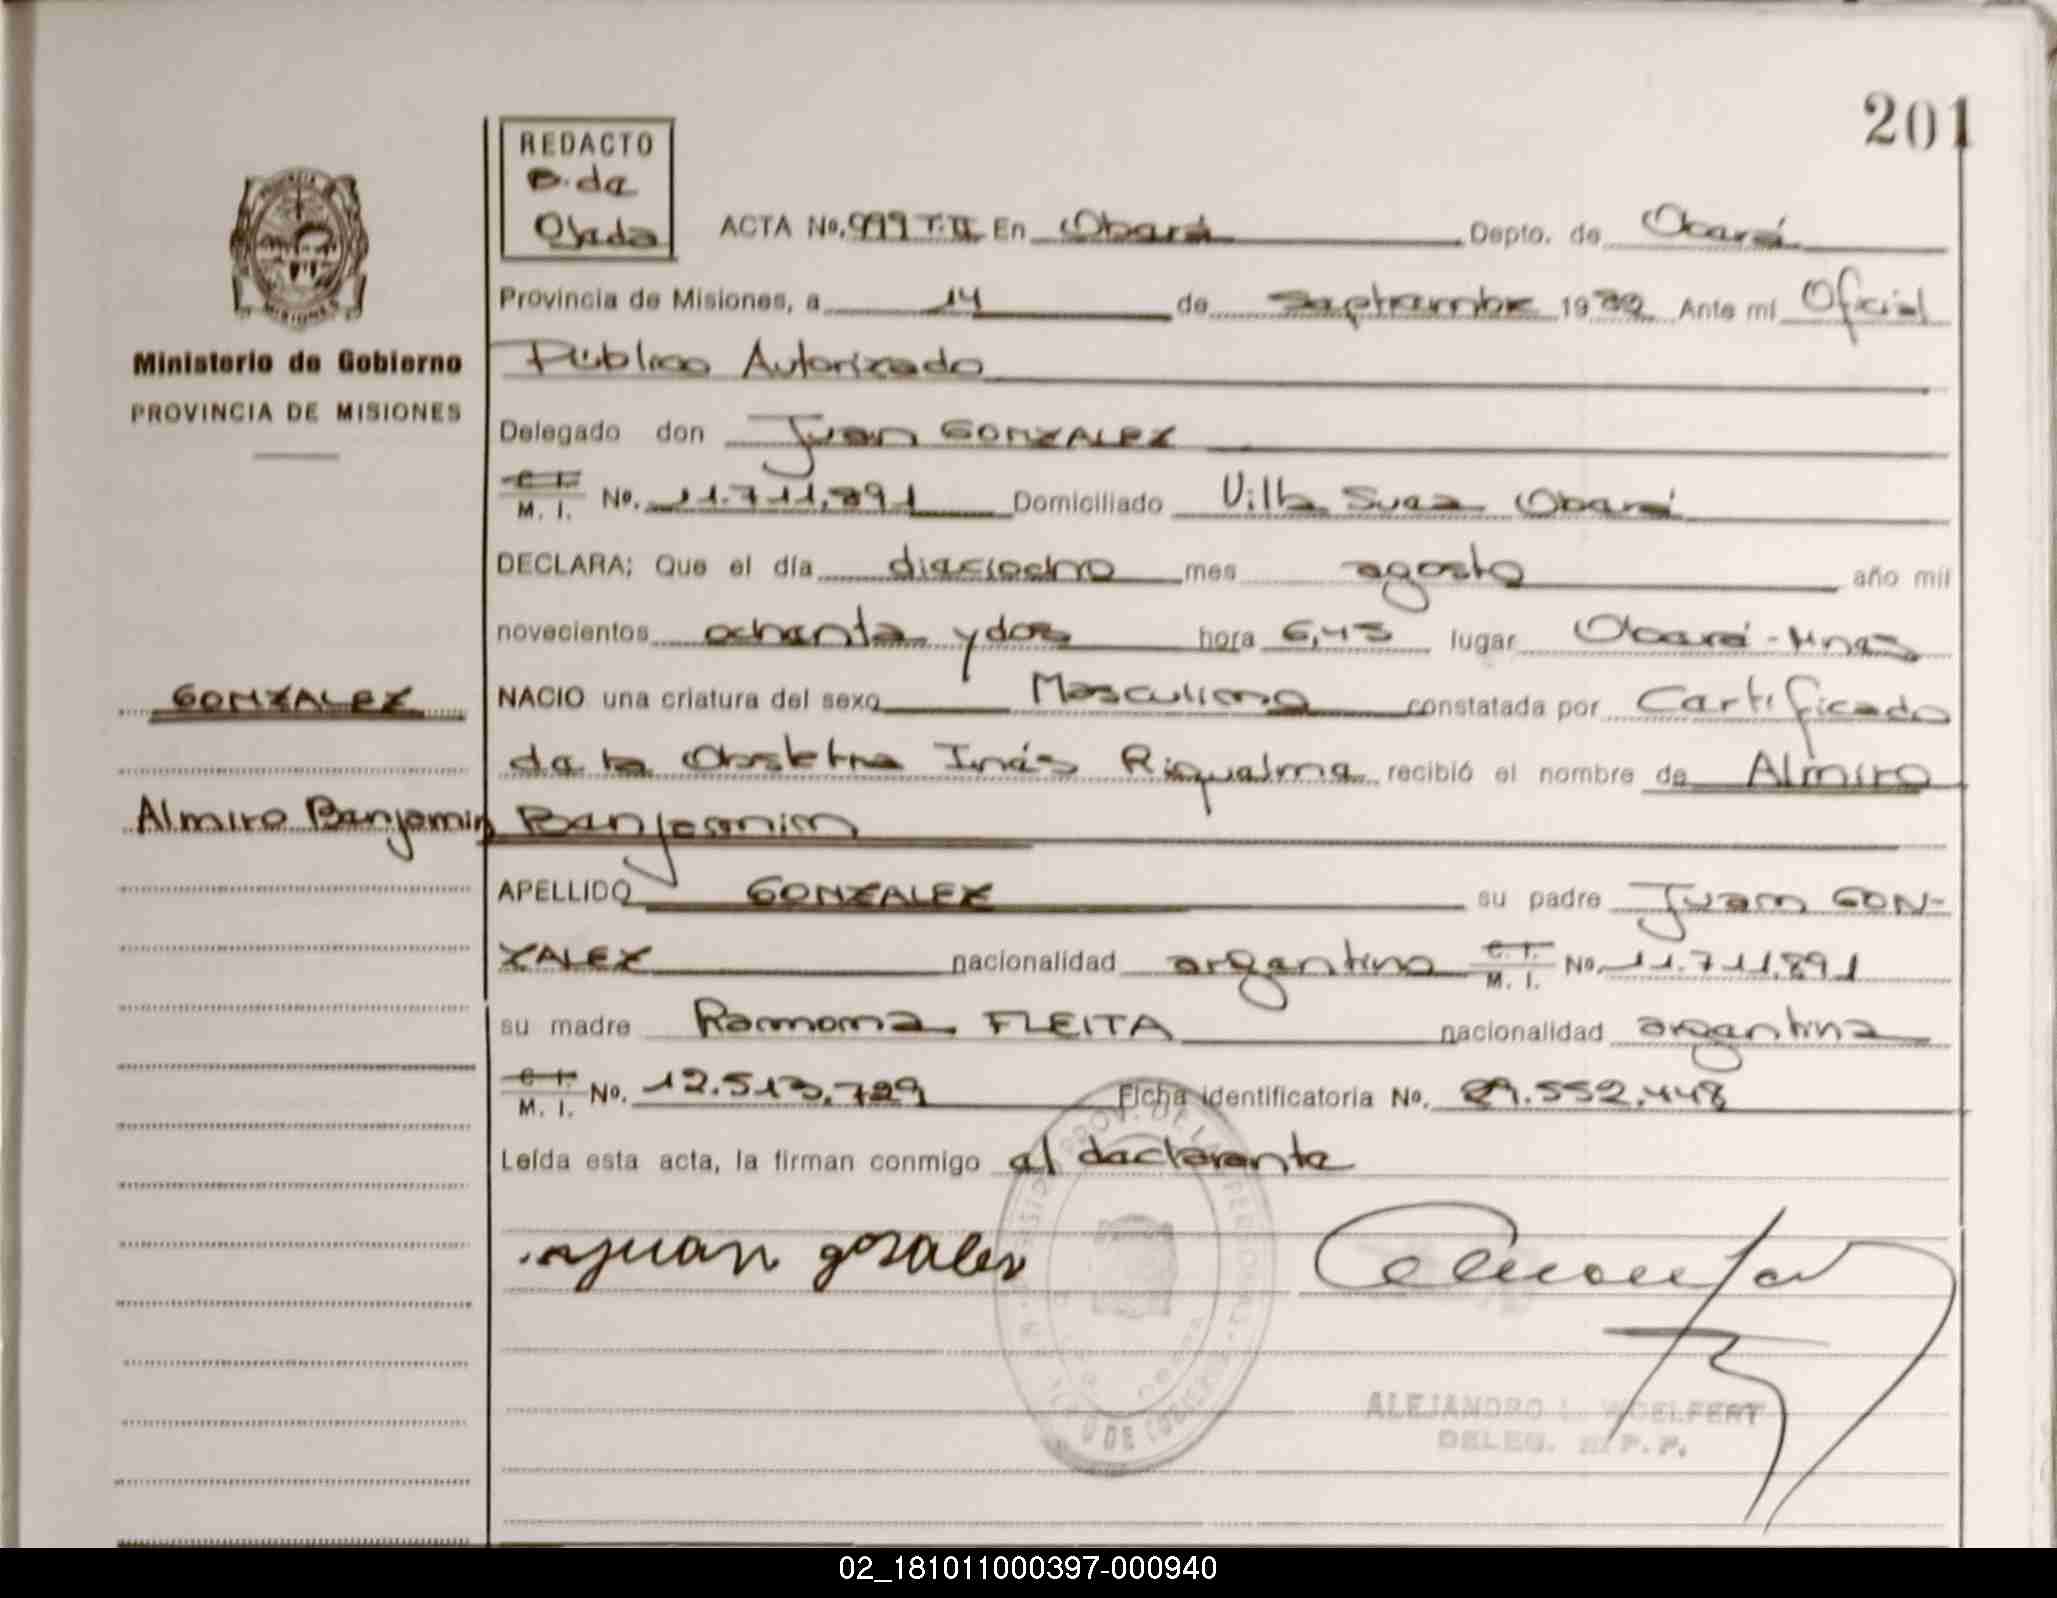 201
REDACTO
B. de
Ojeda
ACTA No. 999 T.II En Oberá Depto. de Oberá
Provincia de Misiones, a 14 de Septiembre 1982 Ante mí Oficial
Público Autorizado
Ministerio de Gobierno
PROVINCIA DE MISIONES
Delegado don Juan GONZALEZ
C. I.
M. I. No. 11.711.891 Domiciliado Villa Svea Oberá
DECLARA; Que el día dieciocho mes agosto año mil
novecientos ochenta y dos hora 6,45 lugar Oberá-Mnes
GONZALEZ
NACIO una criatura del sexo Masculino constatada por Certificado
de la Obstetra Inés recibió el nombre de Almiro
Almiro Benjamin Benjamin
APELLIDO GONZALEZ su padre Juan GON-
ZALEZ nacionalidad argentino C. I. M. I. No. 11.711.891
su madre Ramona FLEITA nacionalidad argentina
C. I.
M. I. No. 12.513.729 Ficha identificatoria No. 29.552.448
Leída esta acta, la firman conmigo el declarante
juan gosales
ALEJANDRO L. WOELFERT
DELEG. R.P.P.
02_181011000397-000940